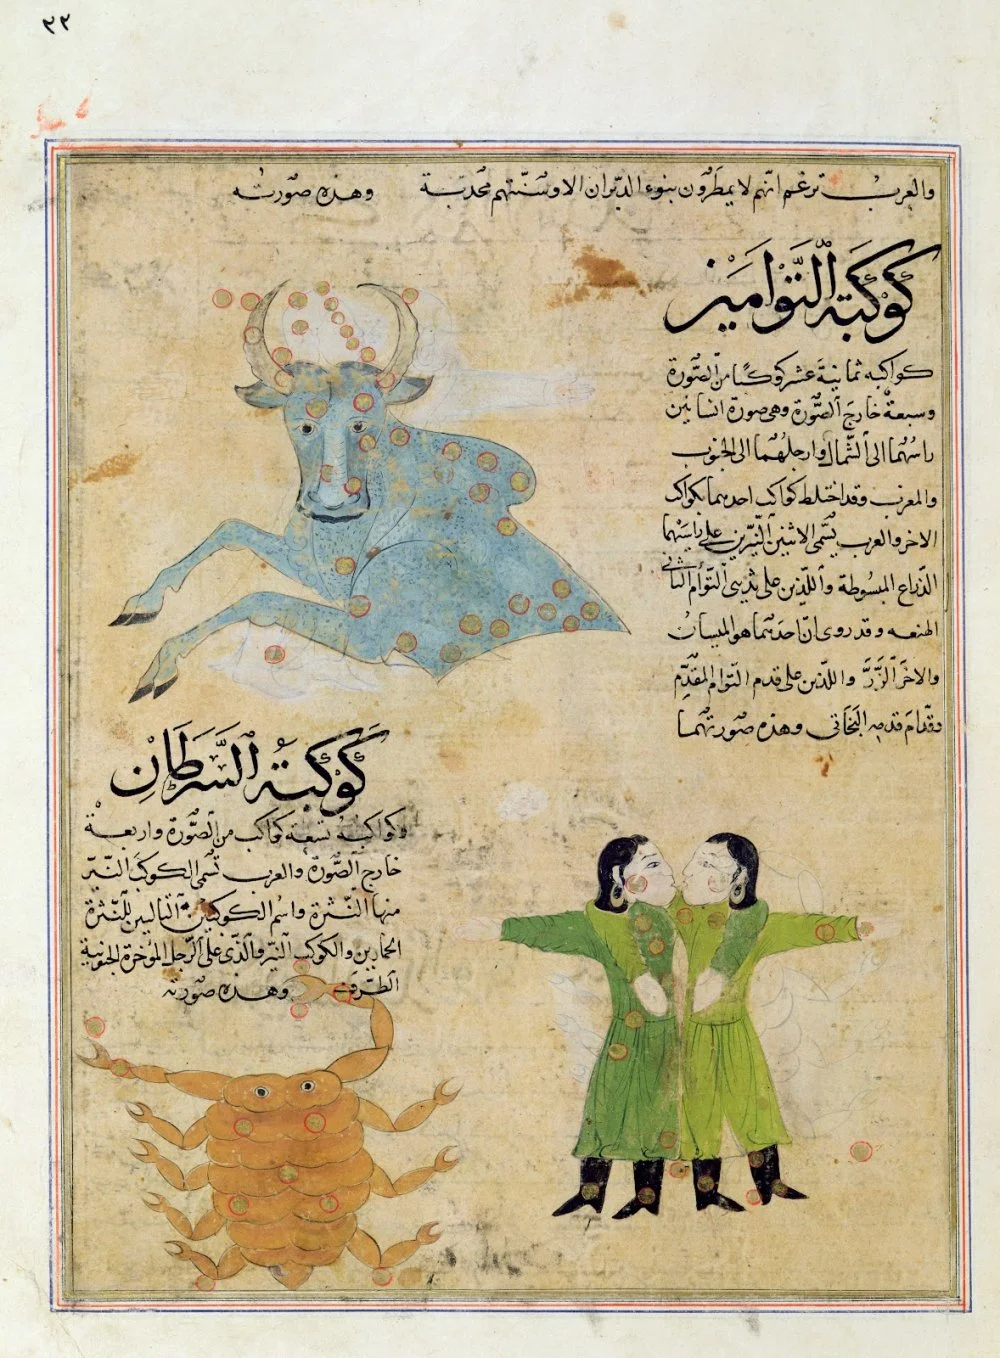 ٢٢
والعرب تزعم انهم لا يمطرون بنوء الدبران الا وسنتهم مجدبة وهذه صورته
كَوْكَبَةُ التَّوْأَمَيْنِ
كواكبه ثمانية عشر كوكبًا من الصُّورة
وسبعة خارج الصُّورة وهى صورة انسانين
راسُهُما الى الشّمال وارجلهُما الى الجنوب
والمغرب وقد اختلط كواكب احدهما بكواكب
الاخر والعرب يسمّى الاثنين النّيّرين على راسَيْهما
الذراع المبسُوطة واللّذين على ثديى التوأم الثانى
الهنعه وقد روى انّ احدَهُما هو الميسان
والاخر الزّرّ واللذين على قدم التوام المقدّم
وقدّام قدمه البخاتى وهذه صورتهما
كَوْكَبَةُ السَّرَطَانِ
وكواكبُهُ تسْعة كواكب من الصُّورة واربعة
خارج الصُّورة والعرب تسمى الكوكب النّيّر
منها النّثرة واسم الكوكبين التاليين للنّثرة
الحمارين والكوكب النّيّر والّذى على الرّجل المؤخرة الجنوبية
الطّرف وهذه صورته